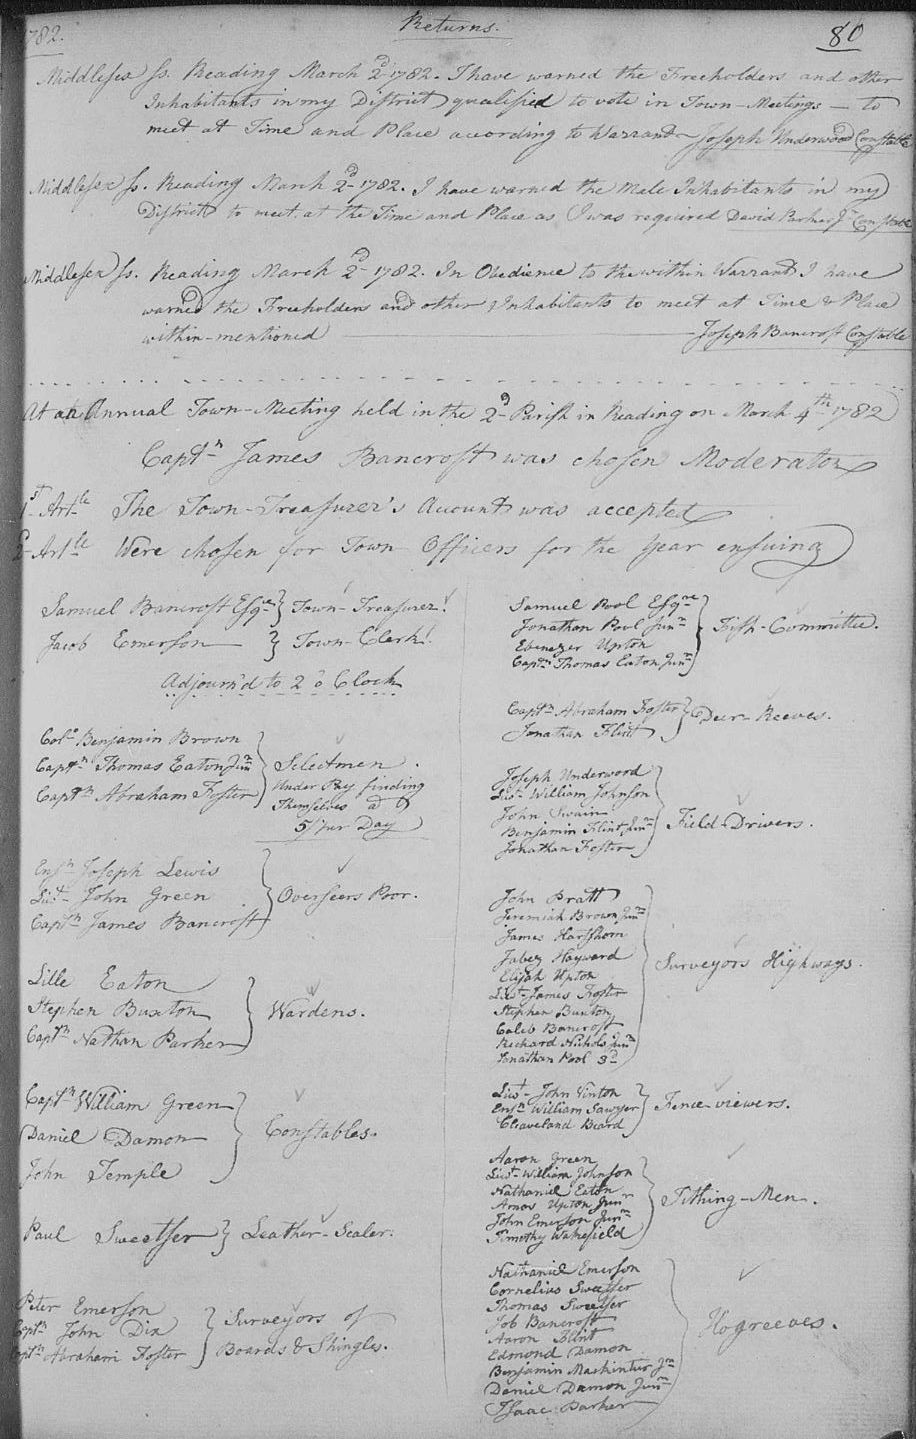 1782. Returns. 80
Middlesex ss. Reading March 2d 1782. I have warned the Freeholders and other
Inhabitants in my District qualified to vote in Town-Meetings — to
meet at Time and Place according to Warrant — Joseph Underwood Constable
Middlesex ss. Reading March 2d 1782. I have warned the Male Inhabitants in my
District to meet at the Time and Place as I was required David Parker Jr Constable
Middlesex ss. Reading March 2d 1782. In Obedience to the within Warrant I have
warned the Freeholders and other Inhabitants to meet at Time & Place
within-mentioned — Joseph Bancroft Constable
At an Annual Town-Meeting held in the 2d Parish in Reading on March 4th 1782
Captn James Bancroft was chosen Moderator
1st Artle The Town-Treasurer's Account was accepted
2d Artle Were chosen for Town Officers for the Year ensuing
Samuel Bancroft Esqre } Town-Treasurer.
Jacob Emerson } Town-Clerk.
Adjourn'd to 2 o Clock
Colo Benjamin Brown
Captn Thomas Eaton Junr
Captn Abraham Foster
} Selectmen.
Under Pay finding
Themselves a d
5/ per Day
Ensn Joseph Lewis
Lieut John Green
Captn James Bancroft
} Overseers Poor.
Lille Eaton
Stephen Buxton
Captn Nathan Parker
} Wardens.
Captn William Green
Daniel Damon
John Temple
} Constables.
Paul Sweetser } Leather-Sealer.
Peter Emerson
Captn John Dix
Captn Abraham Foster
} Surveyors of
Boards & Shingles.
Samuel Pool Esqre
Jonathan Pool Junr
Ebenezer Upton
Captn Thomas Eaton Junr
} Fish-Committee.
Captn Abraham Foster
Jonathan Flint
} Deer-Reeves.
Joseph Underwood
Lieut William Johnson
John Swain
Benjamin Flint Junr
Jonathan Foster
} Field-Drivers.
John Pratt
Jeremiah Brown Junr
James Hartshorn
Jabez Hayward
Elijah Upton
Lieut James Foster
Stephen Buxton
Caleb Bancroft
Richard Nichols Junr
Jonathan Pool 3d
} Surveyors Highways.
Lieut John Vinton
Ensn William Sawyer
Cleaveland Beard
} Fence-viewers.
Aaron Green
Lieut William Johnson
Nathaniel Eaton
Amos Upton Junr
John Emerson Junr
Timothy Wakefield
} Tithing-Men.
Nathaniel Emerson
Cornelius Sweetser
Thomas Sweetser
Job Bancroft
Aaron Flint
Edmond Damon
Benjamin Mackintier Jr
Daniel Damon Junr
Isaac Parker
} Hogreeves.